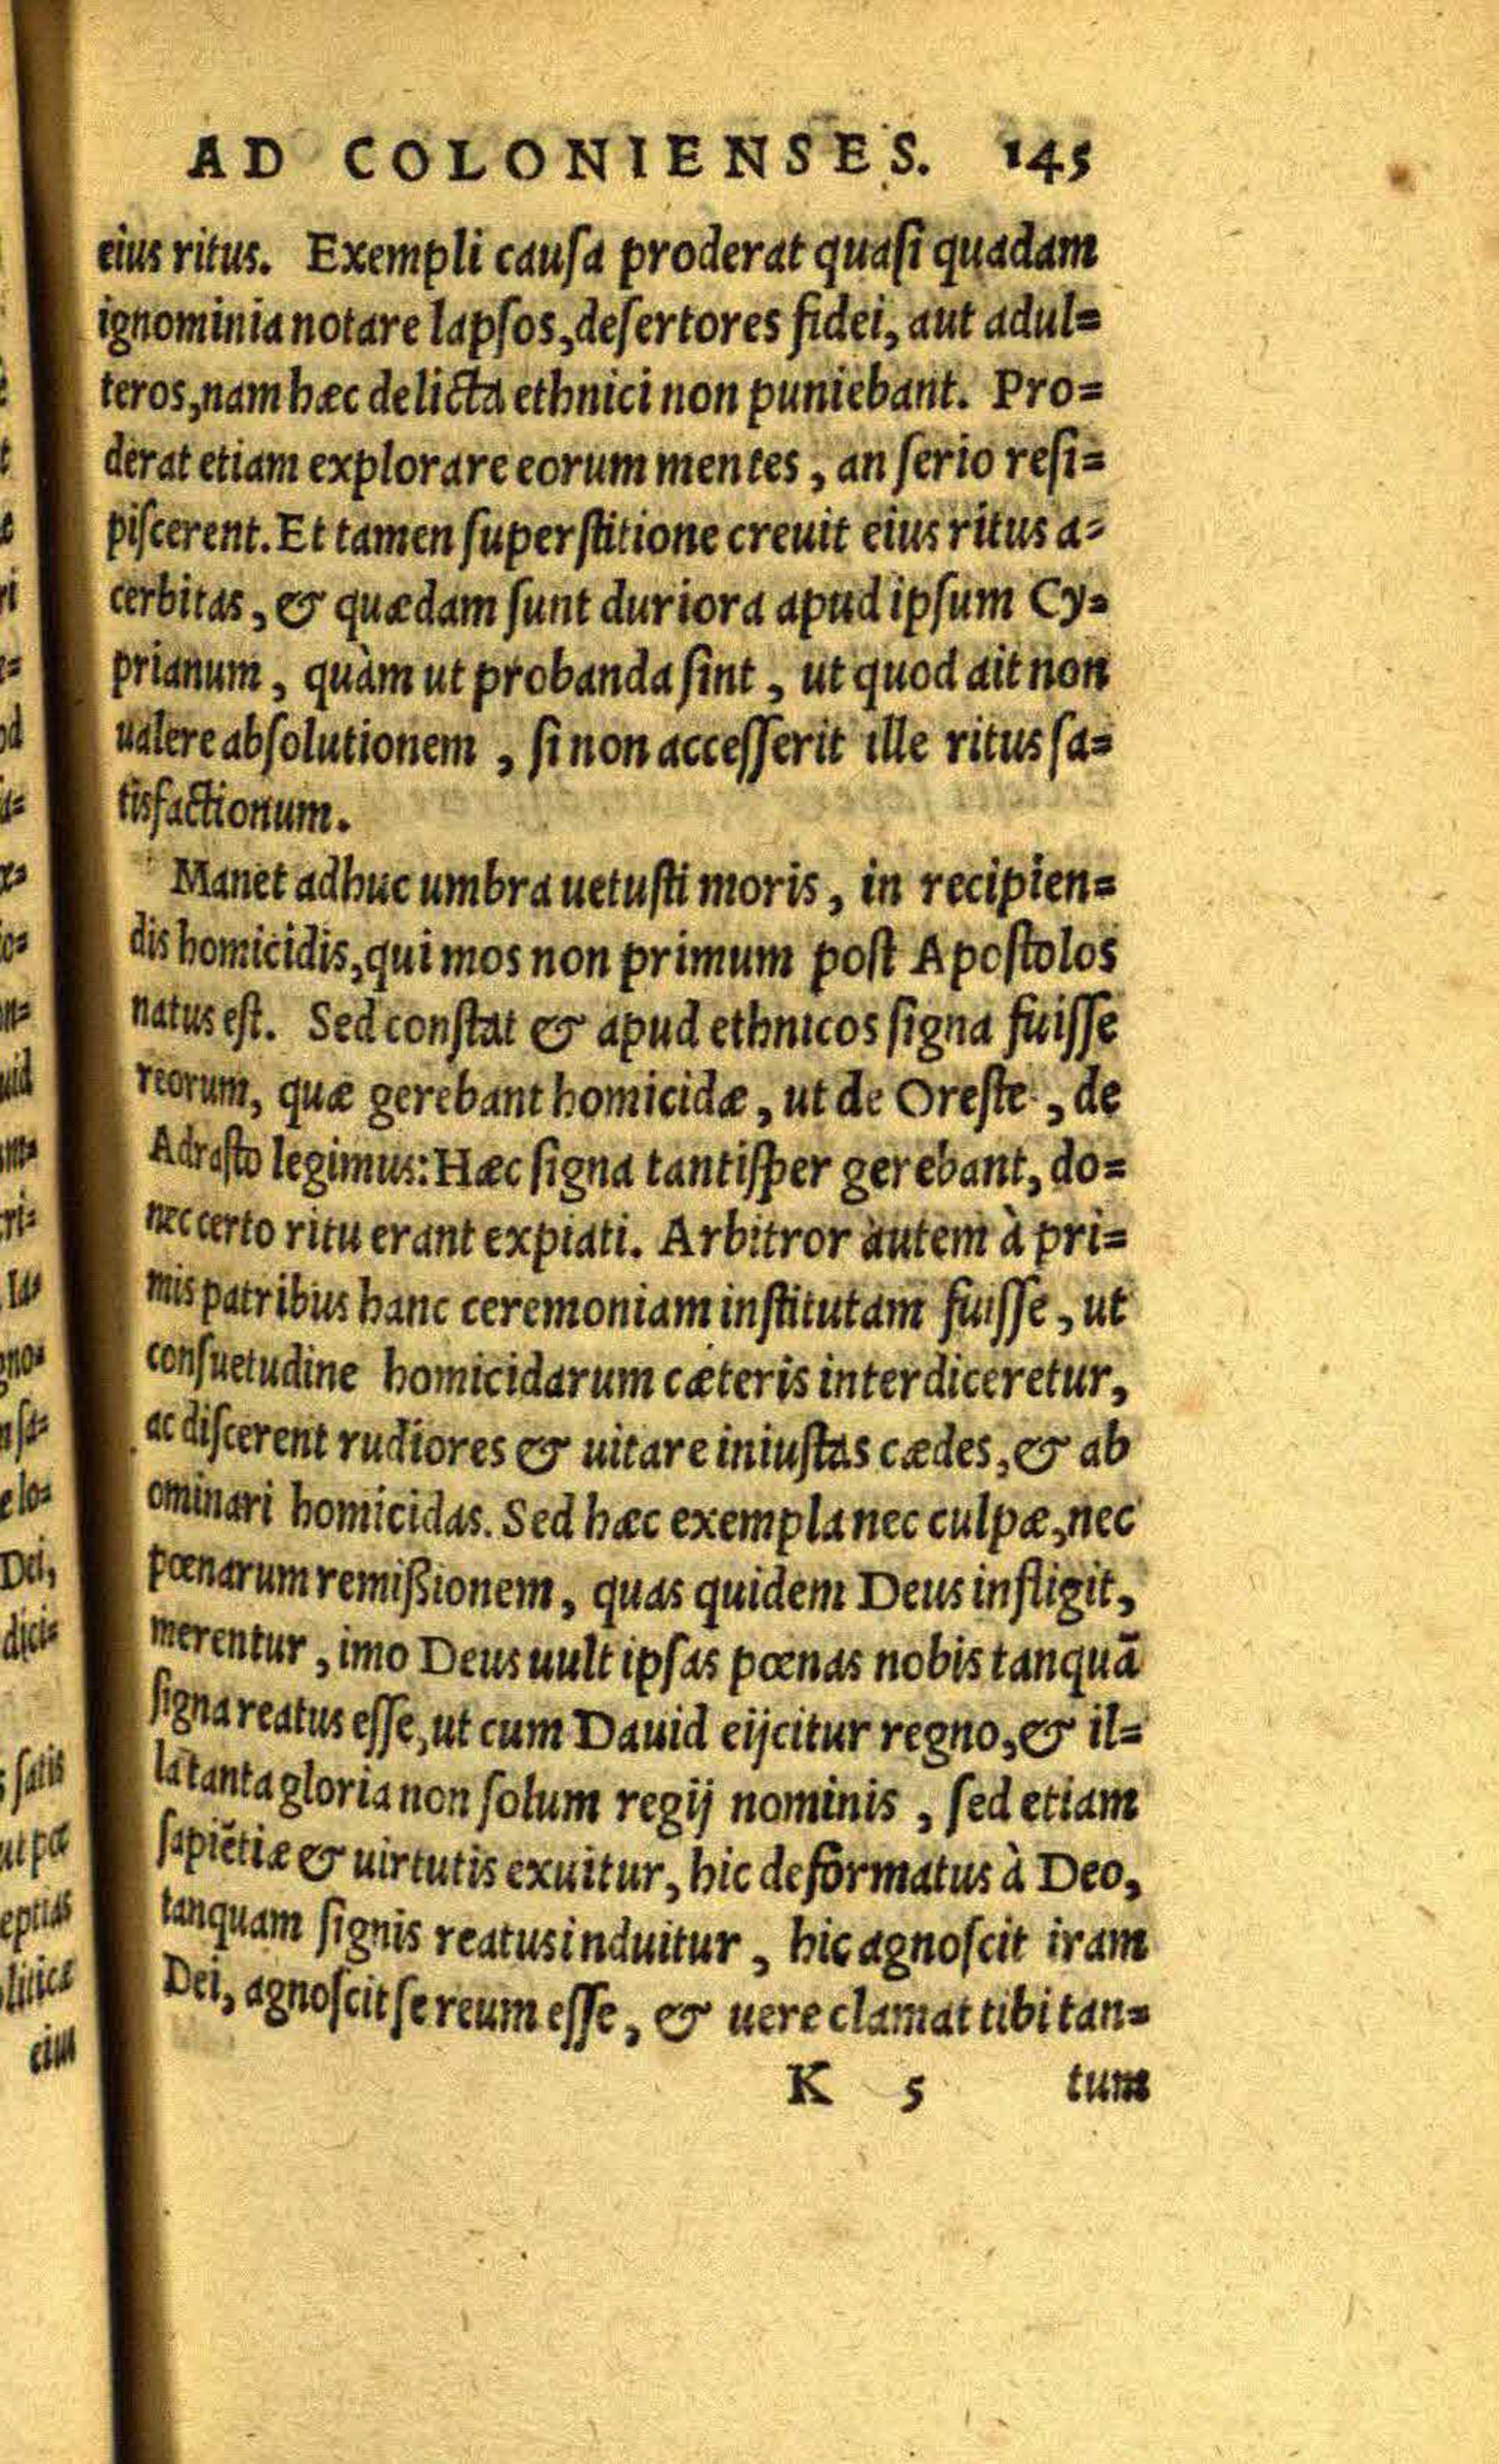 AD COLONIENSES. 145
eius ritus. Exempli cauſa proderat quaſi quadam
ignominia notare lapſos, deſertores fidei, aut adul=
teros, nam hæc delicta ethnici non puniebant. Pro=
derat etiam explorare eorum mentes, an ſerio reſi=
piſcerent. Et tamen ſuperſtitione creuit eius ritus a=
cerbitas, & quædam ſunt duriora apud ipſum Cy=
prianum, quàm ut probanda ſint, ut quod ait non
ualere abſolutionem, ſi non acceſſerit ille ritus ſa=
tisfactionum.
Manet adhuc umbra uetuſti moris, in recipien=
dis homicidis, qui mos non primum poſt Apoſtolos
natus eſt. Sed conſtat & apud ethnicos ſigna fuiſſe
reorum, quæ gerebant homicidæ, ut de Oreſte, de
Adraſto legimus: Hæc ſigna tantiſper gerebant, do=
nec certo ritu erant expiati. Arbitror autem à pri=
mis patribus hanc ceremoniam inſtitutam fuiſſe, ut
conſuetudine homicidarum cæteris interdiceretur,
ac diſcerent rudiores & uitare iniuſtas cædes, & ab
ominari homicidas. Sed hæc exempla nec culpæ, nec
pœnarum remiſſionem, quas quidem Deus infligit,
merentur, imo Deus uult ipſas pœnas nobis tanquã
ſigna reatus eſſe, ut cum Dauid eijcitur regno, & il=
la tanta gloria non ſolum regij nominis, ſed etiam
ſapiẽtiæ & uirtutis exuitur, hic deformatus à Deo,
tanquam ſignis reatus induitur, hic agnoſcit iram
Dei, agnoſcit ſe reum eſſe, & uere clamat tibi tan=
K 5 tum